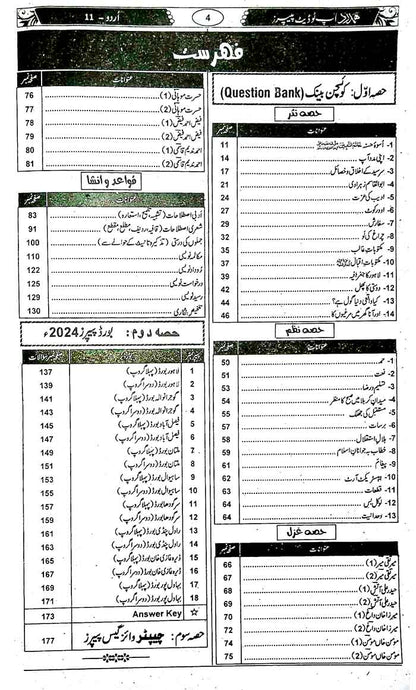 ہمدرد اپ ٹو ڈیٹ پیپرز
4
اُردو - 11
فہرست
حصہ اوّل: کوئسچن بینک (Question Bank)
حصہ نثر
عنوانات صفحہ نمبر
1- اُسوۂ حسنہ 11
2- اپنی مدد آپ 14
3- سرسید کے اخلاق و خصائل 17
4- ابوالقاسم زہراوی 21
5- ادیب کی عزت 24
6- اوورکوٹ 27
7- سفارش 29
8- چراغ کی لَو 32
9- مکتوباتِ غالب 35
10- مکتوباتِ اقبال 37
11- لاہور کا جغرافیہ 39
12- دوستی کا پھل 42
13- کیا واقعی دنیا گول ہے؟ 44
14- اور آنا گھر میں مرغیوں کا 46
حصہ نظم
عنوانات صفحہ نمبر
1- حمد 50
2- نعت 51
3- تسلیم و رضا 53
4- میدانِ کربلا میں صبح کا منظر 54
5- مستقبل کی جھلک 55
6- برسات 57
7- ہلالِ استقلال 58
8- خطاب بہ جوانانِ اسلام 59
9- پیغام 61
10- ایبسٹریکٹ آرٹ 62
11- قطعات 63
12- لوکل بس 64
13- وحدانیت 64
حصہ غزل
عنوانات صفحہ نمبر
میر تقی میر (1) 66
میر تقی میر (2) 67
حیدر علی آتش (1) 68
حیدر علی آتش (2) 69
میرزا خان داغ (1) 70
میرزا خان داغ (2) 72
مومن خاں مومن (1) 74
مومن خاں مومن (2) 75
عنوانات صفحہ نمبر
حسرت موہانی (1) 76
حسرت موہانی (2) 77
فیض احمد فیض (1) 78
فیض احمد فیض (2) 79
احمد ندیم قاسمی (1) 80
احمد ندیم قاسمی (2) 81
قواعد و انشا
عنوانات صفحہ نمبر
ادبی اصطلاحات (تشبیہ، تلمیح، استعارہ) 83
شعری اصطلاحات (قافیہ، ردیف، مطلع، مقطع) 91
جملوں کی درستی (تذکیر و تانیث کے حوالے سے) 100
مکالمہ نویسی 110
روداد نویسی 122
درخواست نویسی 125
رسید نویسی 129
تلخیص نگاری 130
حصہ دوم: بورڈ پیپرز 2024ء
1 لاہور بورڈ (پہلا گروپ) 137
2 لاہور بورڈ (دوسرا گروپ) 139
3 گوجرانوالہ بورڈ (پہلا گروپ) 141
4 گوجرانوالہ بورڈ (دوسرا گروپ) 143
5 فیصل آباد بورڈ (پہلا گروپ) 145
6 فیصل آباد بورڈ (دوسرا گروپ) 147
7 ملتان بورڈ (پہلا گروپ) 149
8 ملتان بورڈ (دوسرا گروپ) 151
9 ساہیوال بورڈ (پہلا گروپ) 153
10 ساہیوال بورڈ (دوسرا گروپ) 155
11 سرگودھا بورڈ (پہلا گروپ) 157
12 سرگودھا بورڈ (دوسرا گروپ) 159
13 راولپنڈی بورڈ (پہلا گروپ) 161
14 راولپنڈی بورڈ (دوسرا گروپ) 163
15 ڈیرہ غازی خان بورڈ (پہلا گروپ) 165
16 ڈیرہ غازی خان بورڈ (دوسرا گروپ) 167
17 بہاولپور بورڈ (پہلا گروپ) 169
18 بہاولپور بورڈ (دوسرا گروپ) 171
☆ Answer Key 173
حصہ سوم: چیپٹر وائز گیس پیپرز 177